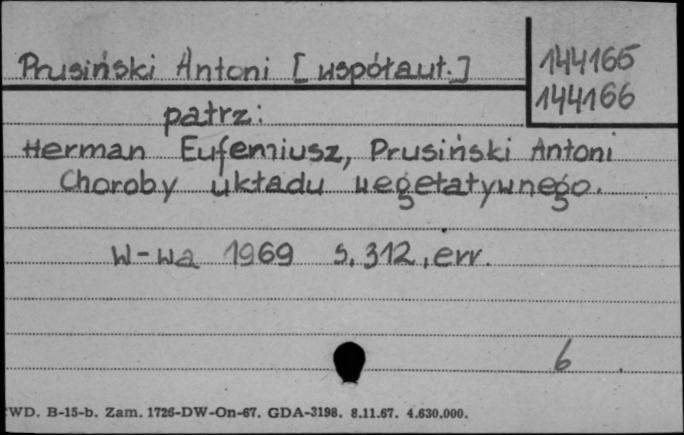 Prusiński Antoni [współaut.]
144165
144166
patrz:
Herman Eufemiusz, Prusiński Antoni
Choroby układu wegetatywnego.
W-wa 1969 s. 312, err.
6
WD. B-15-b. Zam. 1726-DW-On-67. GDA-3198. 8.11.67. 4.630.000.